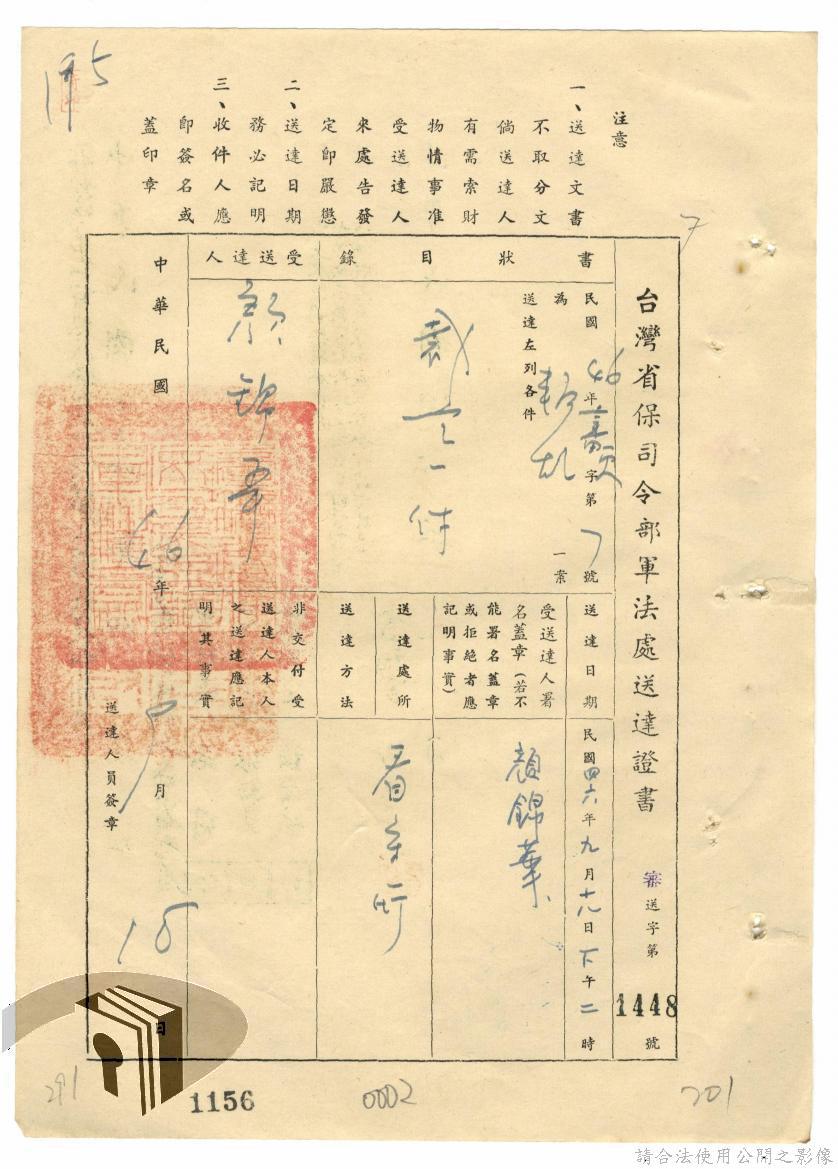 注意
一、送達文書
不取分文
倘送達人
有需索財
物情事准
受送達人
來處告發
定即嚴懲
二、送達日期
務必記明
三、收件人應
即簽名或
蓋印章
台灣省保司令部軍法處送達證書 審送字第1448號
書狀目錄
民國46年字第7號
為叛亂一案
送達左列各件
裁定一件
受送達人
顏錦華
送達日期
民國四六年九月十八日下午二時
受送達人署
名蓋章(若不
能署名蓋章
或拒絕者應
記明事實)
顏錦華
送達處所
看守所
送達方法
非交付受
送達人本人
之送達應記
明其事實
中華民國46年9月18日
送達人員簽章
5
7
291
1156
0002
201
請合法使用公開之影像